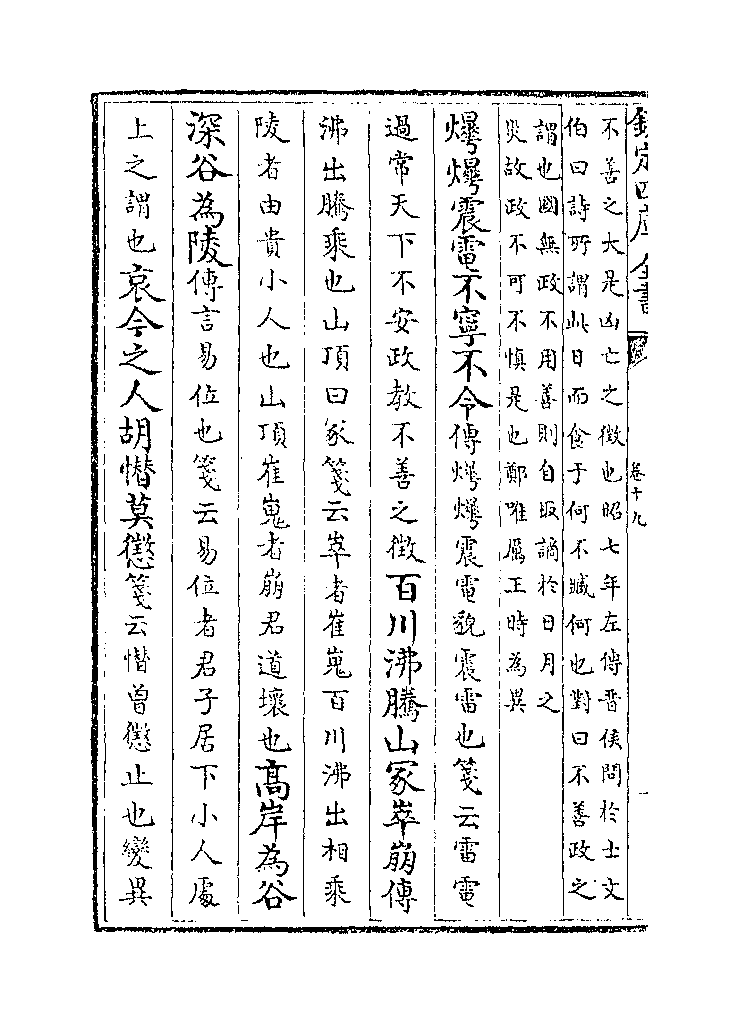 欽定四庫全書
卷十九
不善之大是凶亡之徵也昭七年左傳晉侯問於士文
伯曰詩所謂此日而食于何不臧何也對曰不善政之
謂也國無政不用善則自取謫於日月之
災故政不可不慎是也鄭唯厲王時為異
爗爗震電不寧不令傳爗爗震電貌震雷也箋云雷電
過常天下不安政教不善之徵百川沸騰山冢崒崩傳
沸出騰乘也山頂曰冢箋云崒者崔嵬百川沸出相乘
陵者由貴小人也山頂崔嵬者崩君道壞也高岸為谷
深谷為陵傳言易位也箋云易位者君子居下小人處
上之謂也哀今之人胡憯莫懲箋云憯曾懲止也變異